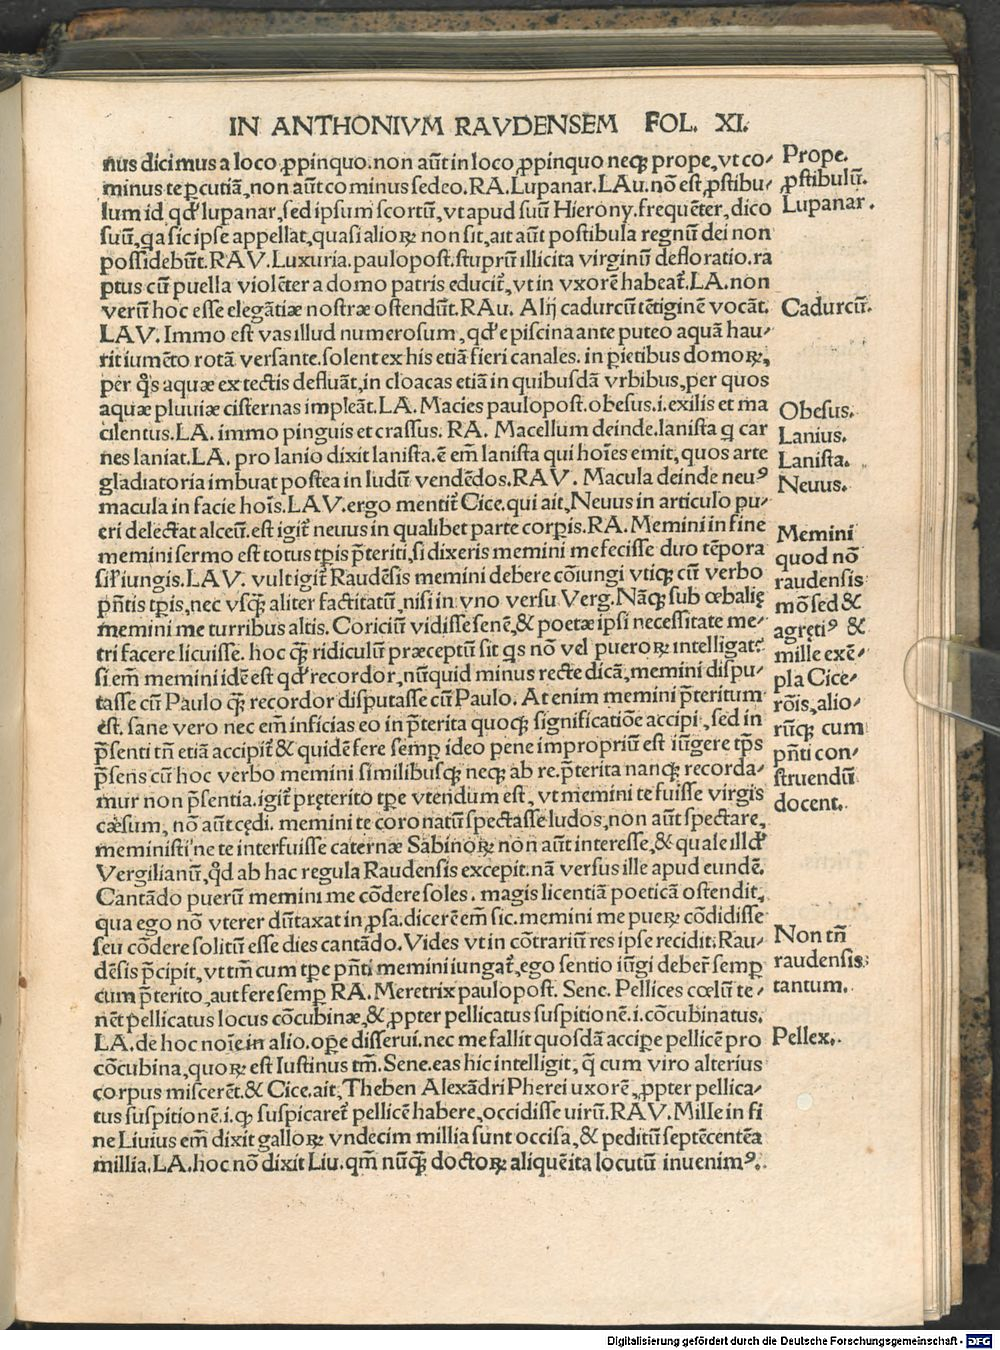 IN ANTHONIVM RAVDENSEM FOL. XI.
nus dicimus a loco ꝓpinquo. non aūt in loco ꝓpinquo neqꝫ prope, vt co-
minus te ꝑcutiā, non aūt cominus sedeo. RA. Lupanar. LAu. nō est ꝓstibu-
lum id qd' lupanar, sed ipsum scortū, vt apud suū Hierony. frequēter, dico
suū, qa sic ipse appellat, quasi alioꝝ non sit, ait aūt postibula regnū dei non
possidebūt. RAV. Luxuria. paulopost. stuprū illicita virginū defloratio. ra
ptus cū puella violēter a domo patris educit᷑, vt in vxorē habeat᷑. LA. non
verū hoc esse elegātiæ nostræ ostendūt. RAu. Alij cadurcū tētiginē vocāt.
LAV. Immo est vas illud numerosum, qd' e piscina ante puteo aquā hau-
rit iumēto rotā versante. solent ex his etiā fieri canales. in ꝑietibus domoꝝ,
per q̄s aquæ ex tectis defluāt, in cloacas etiā in quibusdā vrbibus, per quos
aquæ pluuiæ cisternas impleāt. LA. Macies paulopost. obesus. i. exilis et ma
cilentus. LA. immo pinguis et crassus. RA. Macellum deinde. lanista q car
nes laniat. LA. pro lanio dixit lanista. ē em̄ lanista qui hoīes emit, quos arte
gladiatoria imbuat postea in ludū vendēdos. RAV. Macula deinde neuꝰ
macula in facie hoīs. LAV. ergo mentit᷑ Cice. qui ait, Neuus in articulo pu-
eri delectat alceū. est igit᷑ neuus in qualibet parte corꝑis. RA. Memini in fine
memini sermo est totus tꝑis p̄teriti, si dixeris memini me fecisse duo tēpora
sil' iungis. LAV. vult igit᷑ Raudēsis memini debere cōiungi vtiqꝫ cū verbo
pn̄tis tꝑis, nec vsqꝫ̄ aliter factitatū, nisi in vno versu Verg. Nāqꝫ sub œbalię
memini me turribus altis. Coriciū vidisse senē, & poetæ ipsi necessitate me-
tri facere licuisse. hoc qꝫ̄ ridiculū præceptū sit qs nō vel pueroꝝ intelligat?
si em̄ memini idē est qd' recordor, nūquid minus recte dicā, memini dispu-
tasse cū Paulo qꝫ̄ recordor disputasse cū Paulo. At enim memini p̄teritum
est. sane vero nec em̄ inficias eo in p̄terita quoqꝫ significatiōe accipi, sed in
p̄senti tn̄ etiā accipit᷑ & quidē fere semꝑ ideo pene impropriū est iūgere tp̄s
p̄sens cū hoc verbo memini similibusqꝫ neqꝫ ab re. p̄terita nanqꝫ recorda-
mur non p̄sentia. igit᷑ pręterito tꝑe vtendum est, vt memini te fuisse virgis
cæsum, nō aūt cędi. memini te coronatū spectasse ludos, non aūt spectare,
meministi'ne te interfuisse caternæ Sabinoꝝ non aūt interesse, & quale illd'
Vergilianū, qd̄ ab hac regula Raudensis excepit. nā versus ille apud eundē.
Cantādo puerū memini me cōdere soles. magis licentiā poeticā ostendit,
qua ego nō vterer dūtaxat in ꝓsa. dicerē em̄ sic. memini me pueꝝ cōdidisse
seu cōdere solitū esse dies cantādo. Vides vt in cōtrariū res ipse recidit: Rau-
dēsis p̄cipit, vt tm̄ cum tꝑe pn̄ti memini iungat᷑, ego sentio iūgi deber̄ semꝑ
cum p̄terito, aut fere semꝑ RA. Meretrix paulopost. Sene. Pellices cœlū te-
nēt pellicatus locus cōcubinæ, & ꝓpter pellicatus suspitionē. i. cōcubinatus.
LA. de hoc noīe in alio. oꝑe disserui. nec me fallit quosdā acciꝑe pellicē pro
cōcubina, quoꝝ est Iustinus tm̄. Sene. eas hic intelligit, q̄ cum viro alterius
corpus miscerēt. & Cice. ait, Theben Alexādri Pherei uxorē, ꝓpter pellica-
tus suspitionē. i. qꝫ suspicaret᷑ pellicē habere, occidisse uirū. RAV. Mille in fi
ne Liuius em̄ dixit galloꝝ vndecim millia sunt occisa, & peditū septēcentēa
millia. LA. hoc nō dixit Liu. qm̄ nūqꝫ̄ doctoꝝ aliquē ita locutū inuenimꝰ.
Prope.
ꝓstibulū.
Lupanar.
Cadurcū.
Obesus.
Lanius.
Lanista.
Neuus.
Memini
quod nō
raudensis
mō sed &
agrętiꝰ &
mille exē-
pla Cice-
rōis, alio-
rūqꝫ cum
pn̄ti con-
struendū
docent.
Non tn̄
raudensis
tantum.
Pellex.
Digitalisierung gefördert durch die Deutsche Forschungsgemeinschaft - DFG